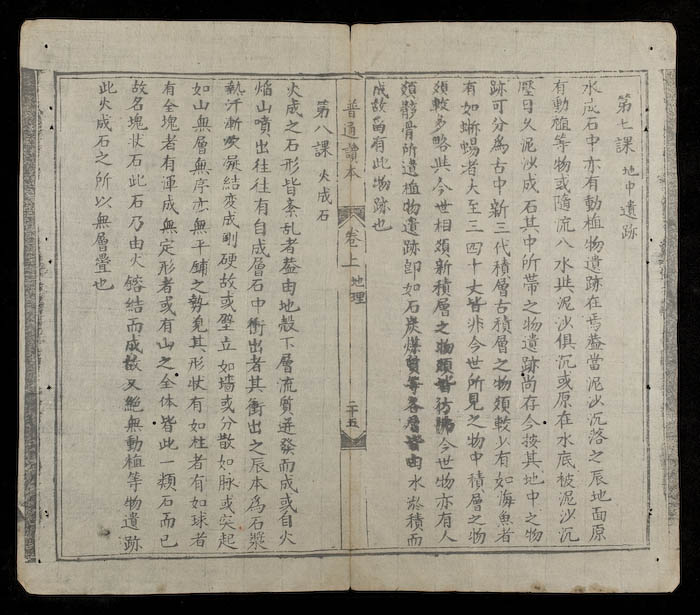 第七課 地中遺跡
水成石中亦有動植物遺跡在焉蓋當泥沙沉落之辰地面原
有動植等物或隨流入水與泥沙俱沉或原在水底被泥沙沉
壓日久泥沙成石其中所帶之物遺跡尚存今按其地中之物
跡可分爲古中新三代積層古積層之物類較少有如海魚者
有如蜥蜴者大至三四十丈皆非今世所見之物中積層之物
類較多略與今世相類新積層之物類皆彷彿今世物亦有人
類骸骨所遺植物遺跡即如石炭煤質等各層皆由水淤積而
成故留有此物跡也
普通讀本
卷上
地理
二十五
第八課 火成石
火成之石形皆紊乱者蓋由地殼下層流質迸發而成或自火
焰山噴出往往有自成層石中衝出者其衝出之辰本爲石漿
熱汗漸次凝結变成剛硬故或壁立如墙或分散如脉或突起
如山無層無序亦無平鋪之勢見其形状有如柱者有如球者
有全塊者有渾成無定形者或有山之全体皆此一類石而已
故名塊状石此石乃由火鎔結而成故又絕無動植等物遺跡
此火成石之所以無層疊也